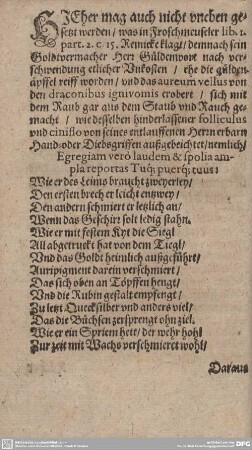 HIEher mag auch nicht vneben ge-
setzt werden / was in Froschmeuseler lib. 1.
part. 2. c. 15. Reinicke klagt / demnach sein
Goldtvermacher Herr Güldenwort nach ver-
schwendung etlicher Vnkosten / ehe die gülden-
äpffel reiff worden / vnd das aureum vellus von
den draconibus ignivomis erobert / sich mit
dem Raub gar aus dem Staub vnd Rauch ge-
macht / wie desselben hinderlassener folliculus
vnd ciniflo von seines entlauffenen Herrn erbarn
Hand- oder Diebsgriffen außgebeichtet / nemlich /
Egregiam verò laudem & spolia am-
pla reportas Tuq; puerq; tuus:
Wie er des Leims braucht zweyerley /
Den ersten brech er leicht entzwey /
Den andern schmiert er letzlich an /
Wenn das Geschirr solt ledig stahn.
Wie er mit festem Kyt die Siegl
All abgetruckt hat von dem Tiegl /
Vnd das Goldt heimlich außgeführt /
Auripigment darein verschmiert /
Das sich oben an Töpffen hengt /
Vnd die Rubin gestalt empfengt /
Zu letzt Quecksilber vnd anders viel /
Das die Büchsen zersprengt ohn ziel.
Wie er ein Spriem hett / der wehr hohl
Zur zeit mit Wachs verschmieret wohl /
Daraus